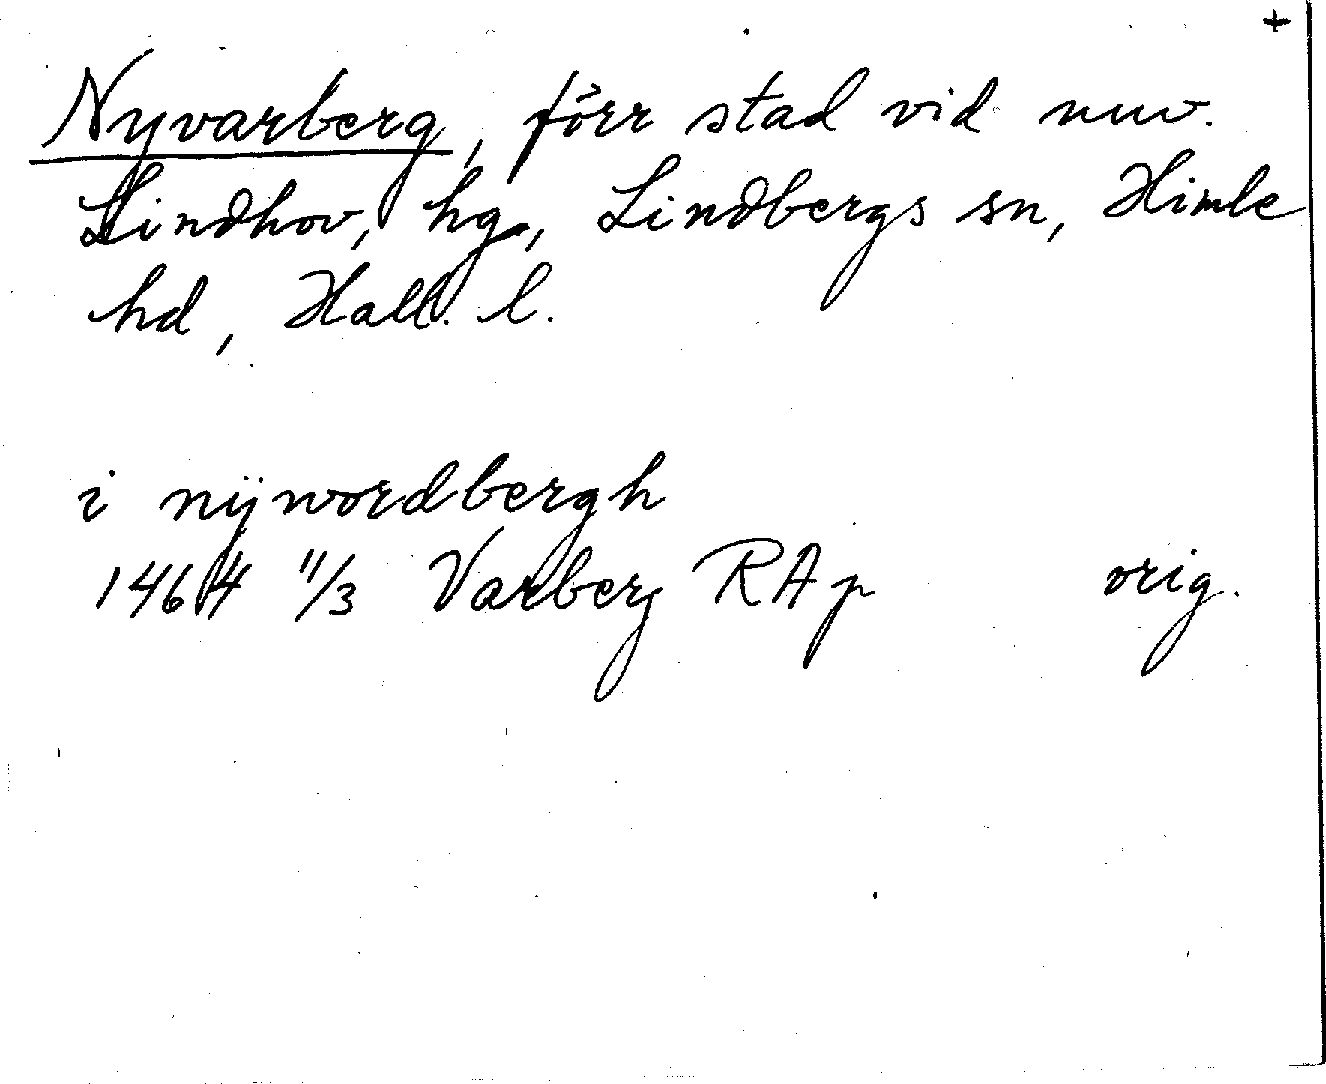 +
Nyvarberg, förr stad vid nuv.
Lindhov, hg, Lindbergs sn, Himle
hd, Hall. l.
i nÿwordbergh
1464 11/3 Varberg RAp orig.